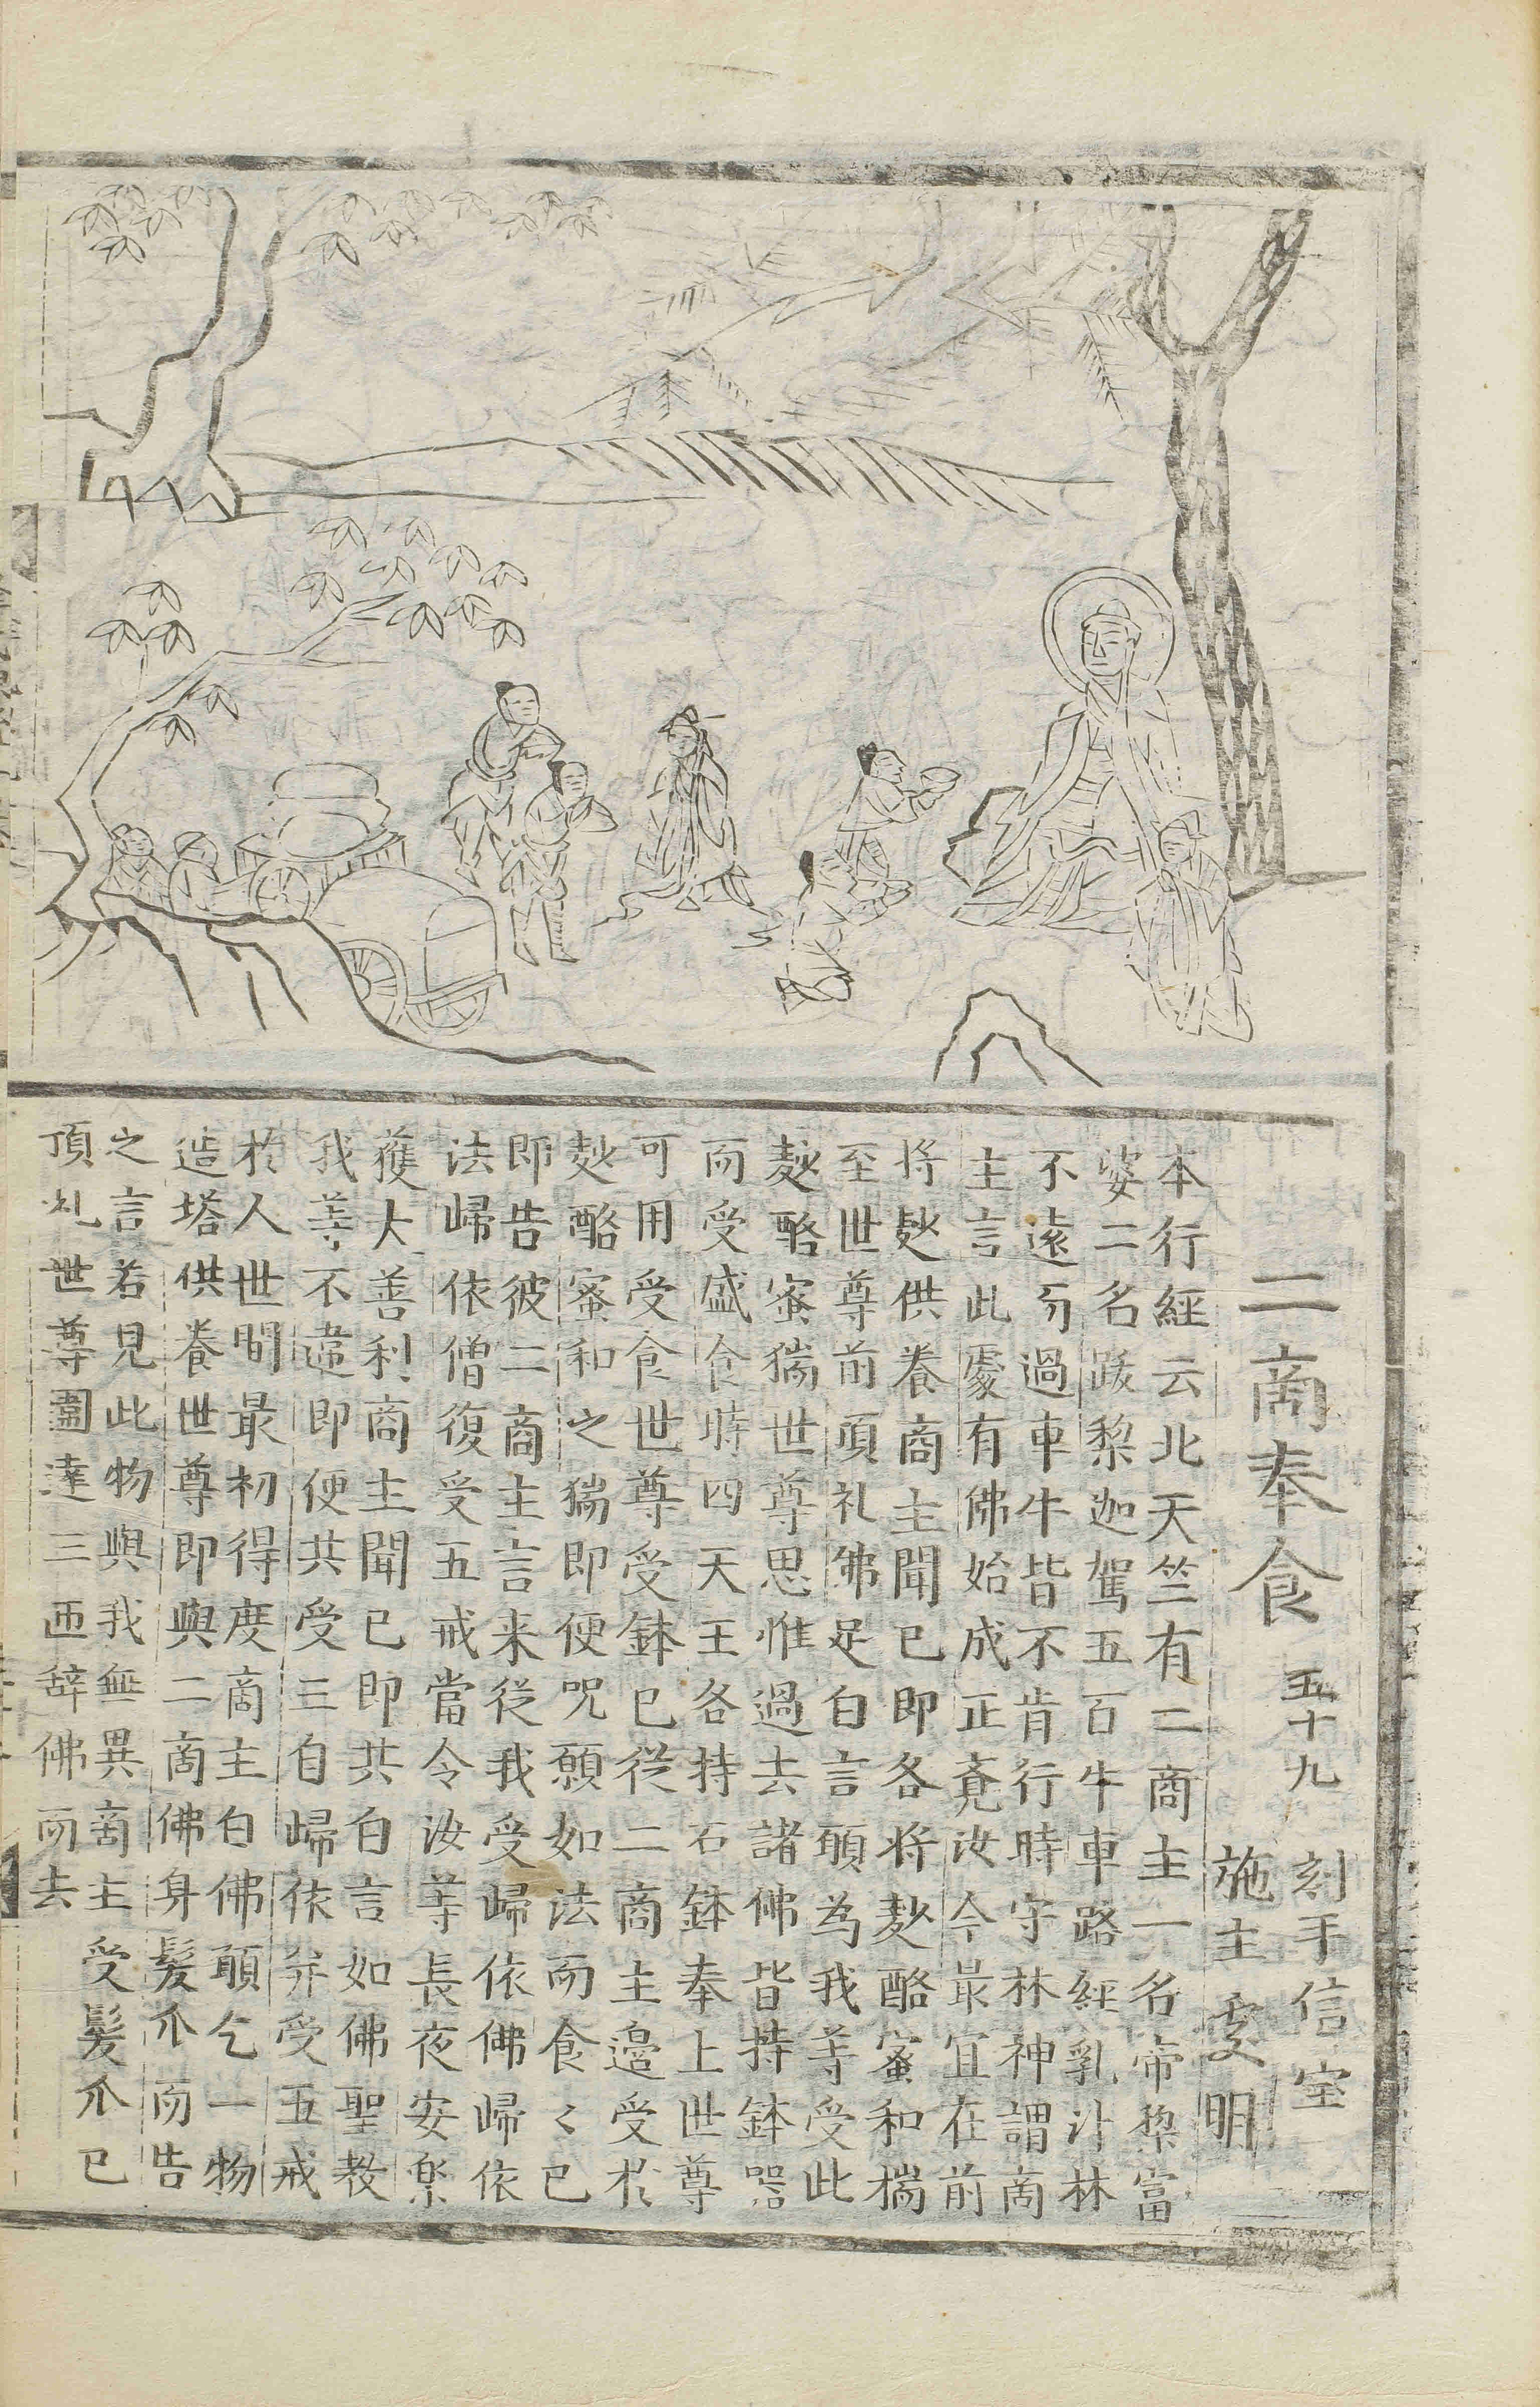 二商奉食 五十九
刻手信宝
施主 雯明
本行經云北天竺有二商主一名帝棃富
婆二名跋棃迦駕五百牛車路經乳汁林
不遠而過車牛皆不肯行時守林神謂商
主言此處有佛始成正覔汝今最宜在前
将麨供養商主聞已即各将麨酪蜜和揣
至世尊前頂礼佛足白言頋為我等受此
麨酪蜜揣世尊思惟過去諸佛皆持鉢器
而受盛食時四天王各持石鉢奉上世尊
可用受食世尊受鉢已從二商主邉受扵
麨酪蜜和之揣即便呪願如法而食〻已
即告彼二商主言来從我受歸依佛歸依
法歸依僧復受五戒當令汝等長夜安楽
獲大善利商主聞已即共白言如佛聖教
我等不違即便共受三自歸依并受五戒
扵人世間最初得度商主白佛頋乞一物
造塔供養世尊即與二商佛身髪爪而告
之言若見此物與我無異商主受髪爪已
頂礼世尊圍遶三匝辝佛而去